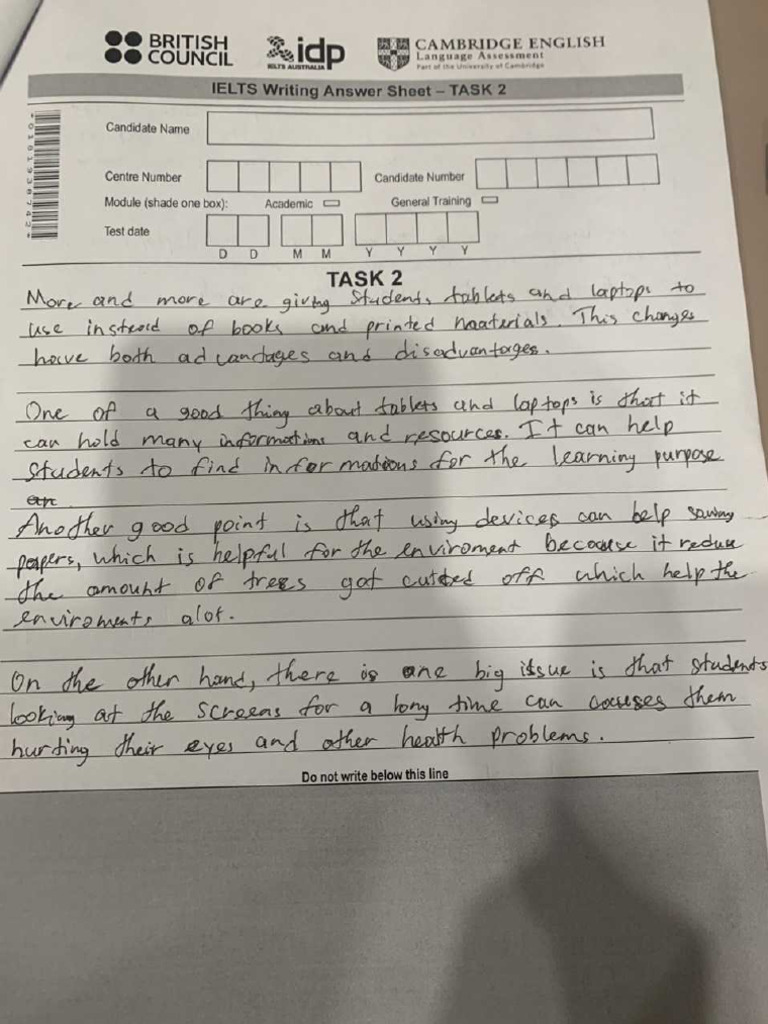 BRITISH COUNCIL
idp
IELTS AUSTRALIA
CAMBRIDGE ENGLISH
Language Assessment
Part of the University of Cambridge
IELTS Writing Answer Sheet – TASK 2
Candidate Name
Centre Number
Candidate Number
Module (shade one box):
Academic
General Training
Test date
D D M M Y Y Y Y
TASK 2
More and more are giving students tablets and laptops to
use instead of books and printed materials. This changes
have both advantages and disadvantages.
One of a good thing about tablets and laptops is that it
can hold many informations and resources. It can help
students to find informations for the learning purpose
Another good point is that using devices can help saving
papers, which is helpful for the enviroment because it reduce
the amount of trees got cutted off which help the
enviroments alot.
On the other hand, there is one big issue is that students
looking at the screens for a long time can causes them
hurting their eyes and other health problems.
Do not write below this line